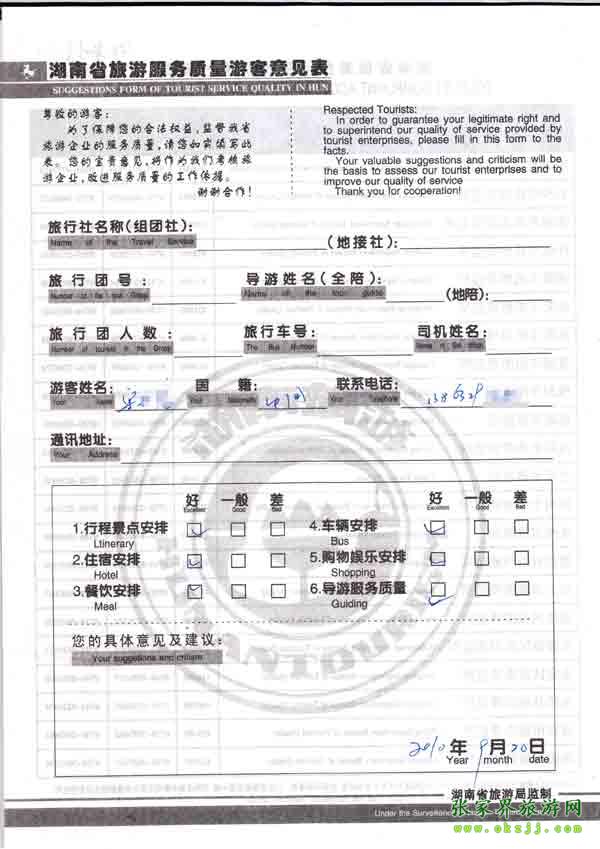 湖南省旅游服务质量游客意见表
SUGGESTIONS FORM OF TOURIST SERVICE QUALITY IN HUN
尊敬的游客:
为了保障您的合法权益,监督我省
旅游企业的服务质量,请您如实填写此
表。您的宝贵意见,将作为我们考核旅
游企业,改进服务质量的工作依据。
谢谢合作!
Respected Tourists:
In order to guarantee your legitimate right and
to superintend our quality of service provided by
tourist enterprises, please fill in this form to the
facts.
Your valuable suggestions and criticism will be
the basis to assess our tourist enterprises and to
improve our quality of service
Thank you for cooperation!
旅行社名称(组团社): (地接社):
Name of the Travel Service
旅行团号: 导游姓名(全陪): (地陪):
Name of the tour guide
旅行团人数: 旅行车号: 司机姓名:
Number of tourists in the Group The Bus Number
游客姓名: 国籍: 中国 联系电话: 1386329
Your Name Your Nationality Your Telephone
通讯地址:
Your Address
好 一般 差 好 一般 差
Excellent Good Bad Excellent Good Bad
1.行程景点安排 4.车辆安排
Ltinerary Bus
2.住宿安排 5.购物娱乐安排
Hotel Shopping
3.餐饮安排 6.导游服务质量
Meal Guiding
您的具体意见及建议:
Your suggetions and critisms
2010年 9月20日
Year month date
湖南省旅游局监制
Under the Surveillance
张家界旅游网
www.okzjj.com